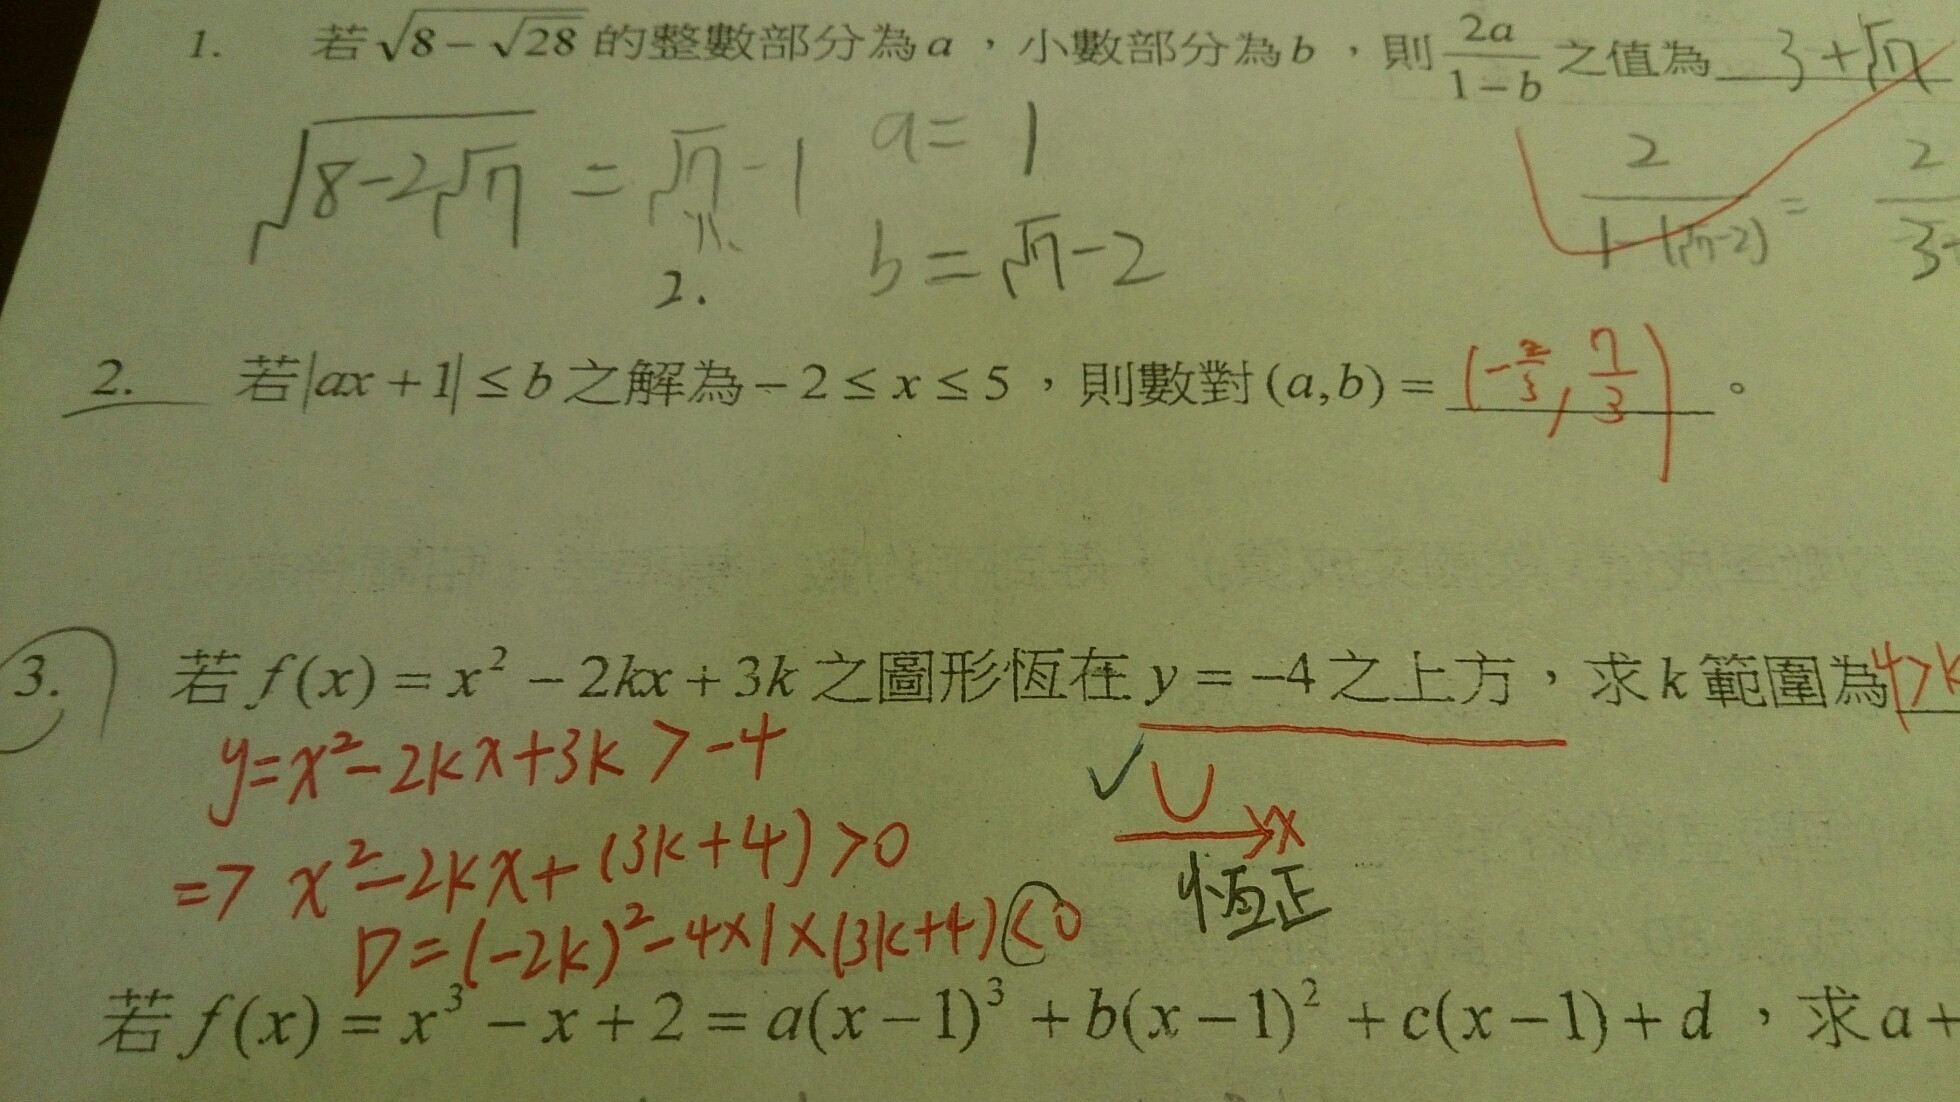 1. 若√(8-√28) 的整數部分為a，小數部分為b，則 2a/(1-b) 之值為 3+√7
√(8-2√7) = √7-1 a= 1
2.
b=√7-2
2/(1-(√7-2)) = 2/3-
2. 若|ax+1|≤b之解為-2≤x≤5，則數對(a,b)= (-2/3, 7/3)。
3. 若f(x)=x²-2kx+3k之圖形恆在y=-4之上方，求k範圍為4>k
y=x²-2kx+3k>-4
=> x²-2kx+(3k+4)>0
✓ x
恆正
D=(-2k)²-4×1×(3k+4)<0
若f(x)=x³-x+2=a(x-1)³+b(x-1)²+c(x-1)+d，求a+